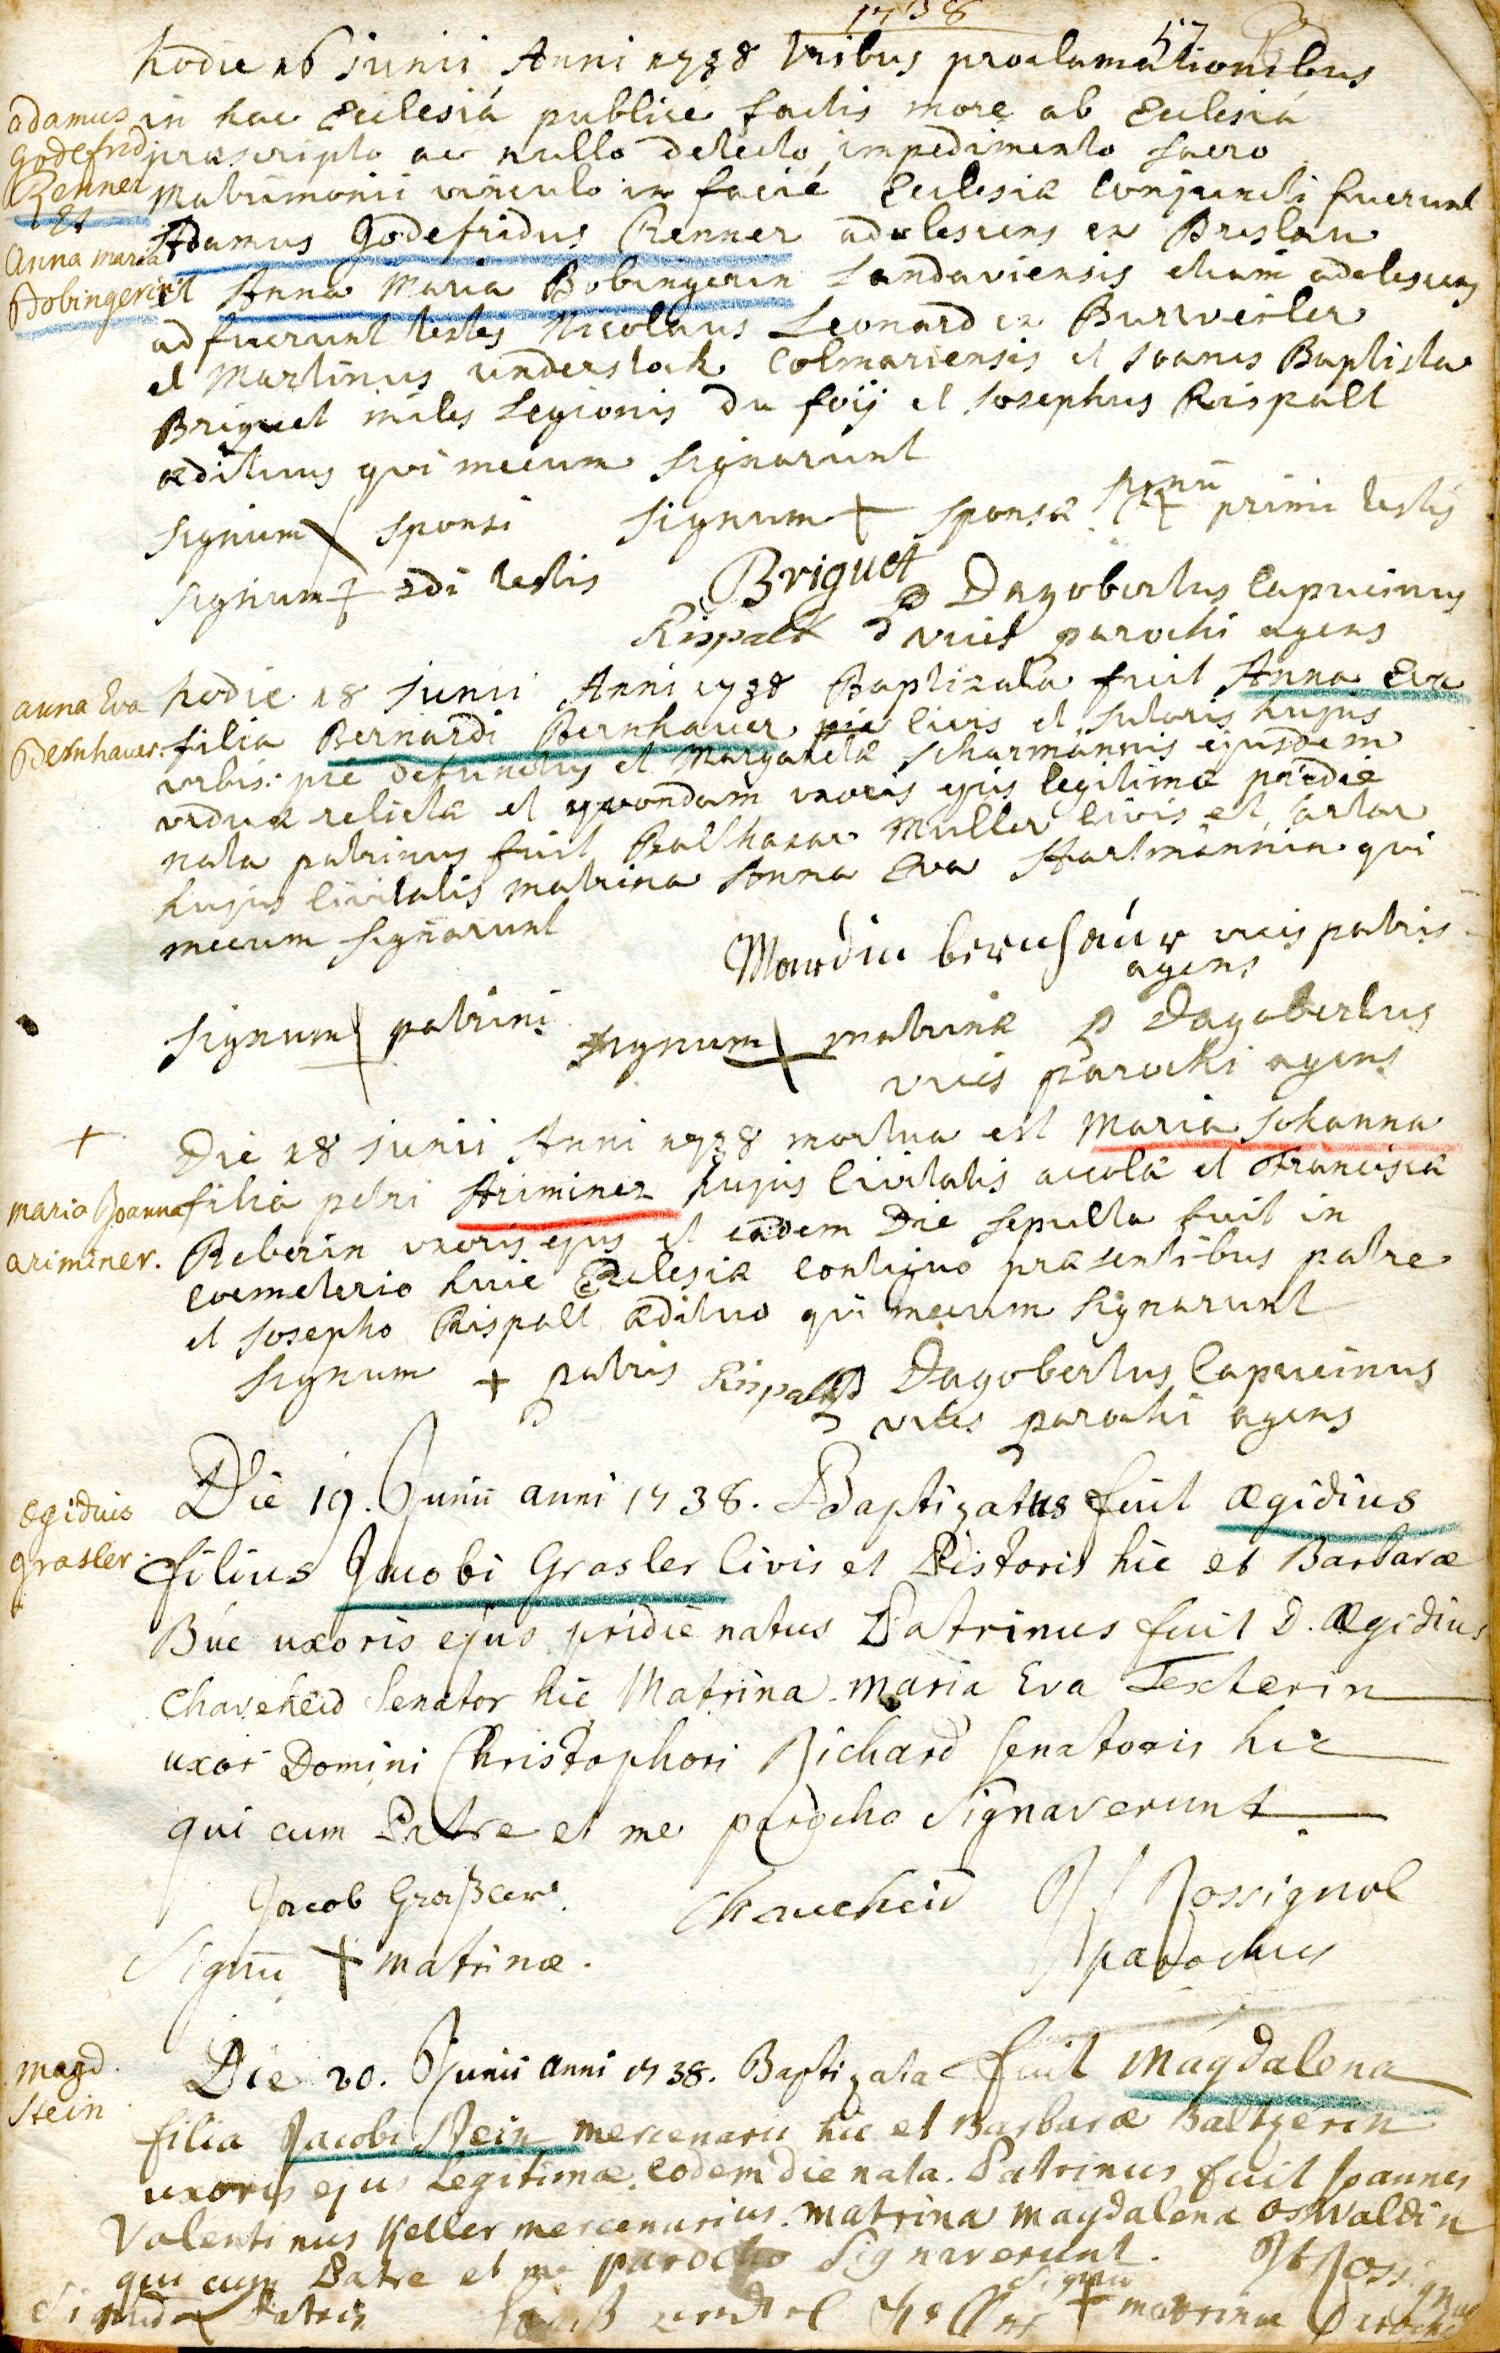 1738
57
hodie 16 junii Anni 1738 tribus proclamationibus
in hac Ecclesiá publicé factis more ab Ecclesiá
præscripto ac nullo detecto impedimento sacro
Matrimonii vinculo in facié Ecclesiæ Conjuncti fuerunt
Adamus Godefridus Renner adolescens ex Breslau
et Anna Maria Bobingerin Landaviensis etiam adolescens
adfuerunt testes Nicolaus Leonard ex Burrweiler
et Martinus understock Colmariensis et Joanes Baptista
Briquet miles Legionis du foÿ et Josephus Rispalt
ædituus qui mecum signarunt
signum sponsi signum + sponsæ signū + primi testis
signum + 2di testis Briquet P Dagobertus Capucinus
Rispalt vices parochi agens
adamus
godefrid
Renner
et
anna maria
Bobingerin
hodie 18 junii Anni 1738 Baptizata fuit Anna Eva
filia Bernardi Bernhauer pie civis et sutoris hujus
urbis: pie defunctus et Margaretæ scharmannis ejusdem
viduæ relictæ et quondam uxoris ejus legitimæ pridie
nata patrinus fuit Balthasar Muller civis et sartor
hujus Civitatis matrina Anna Eva Hartmannin qui
mecum signarunt
vicis patris
agens
signum patrini signum + matrinæ P Dagobertus
vices parochi agens
anna Eva
Bernhauer.
Die 18 junii Anni 1738 mortua est Maria Johanna
filia petri Ariminer hujus Civitatis accolæ et Franciscæ
Reberin uxoris ejus et eadem Die sepulta fuit in
coemeterio huic Ecclesiæ contiguo præsentibus patre
et Josepho Rispalt ædituo qui mecum signarunt
signum + patris Rispalt P Dagobertus Capucinus
vices parochi agens
+
maria Joanna
ariminer.
Die 19. Junii anni 1738. Baptizatus fuit Ægidius
filius Jacobi Grasler Civis et Pistoris hic et Barbaræ
Búc uxoris ejus pridie natus Patrinus fuit D. Ægidius
Chaveheid Senator hic Matrina Maria Eva Texterin
uxor Domini Christophori Richard senatoris hic
qui cum Patre et me parocho Signaverunt
Jacob Graßler Chaveheid Rossignol
Signū + matrinæ. parochus
Ægidius
grasler.
Die 20. Junii anni 1738. Baptizata fuit Magdalena
filia Jacobi Stein mercenarii hic et Barbaræ Baltzerin
uxoris ejus Legitimæ eodem die nata. Patrinus fuit Joannes
Valentinus Keller mercenarius. matrina Magdalena Oswaldin
qui cum Patre et me parocho Signaverunt.
Patris Signū + matrinæ
magd.
Stein